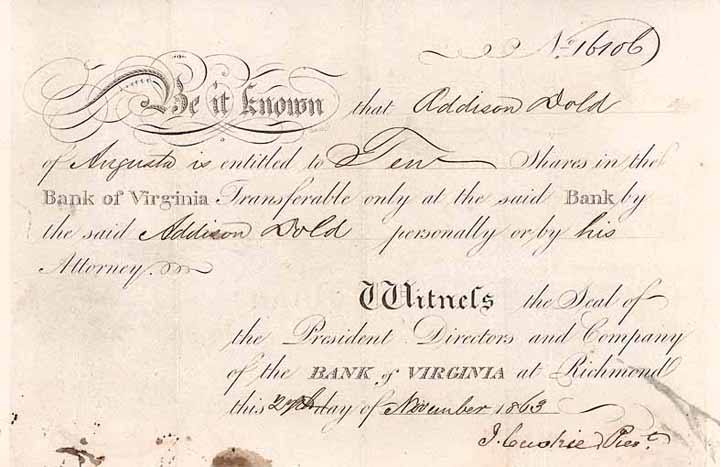 No. 16106
Be it known that Addison Dold
of Augusta is entitled to Ten Shares in the
Bank of Virginia Transferable only at the said Bank by
the said Addison Dold personally or by his
Attorney.
Witness the Seal of
the President Directors and Company
of the BANK of VIRGINIA at Richmond
this day of November 1863
Prest.